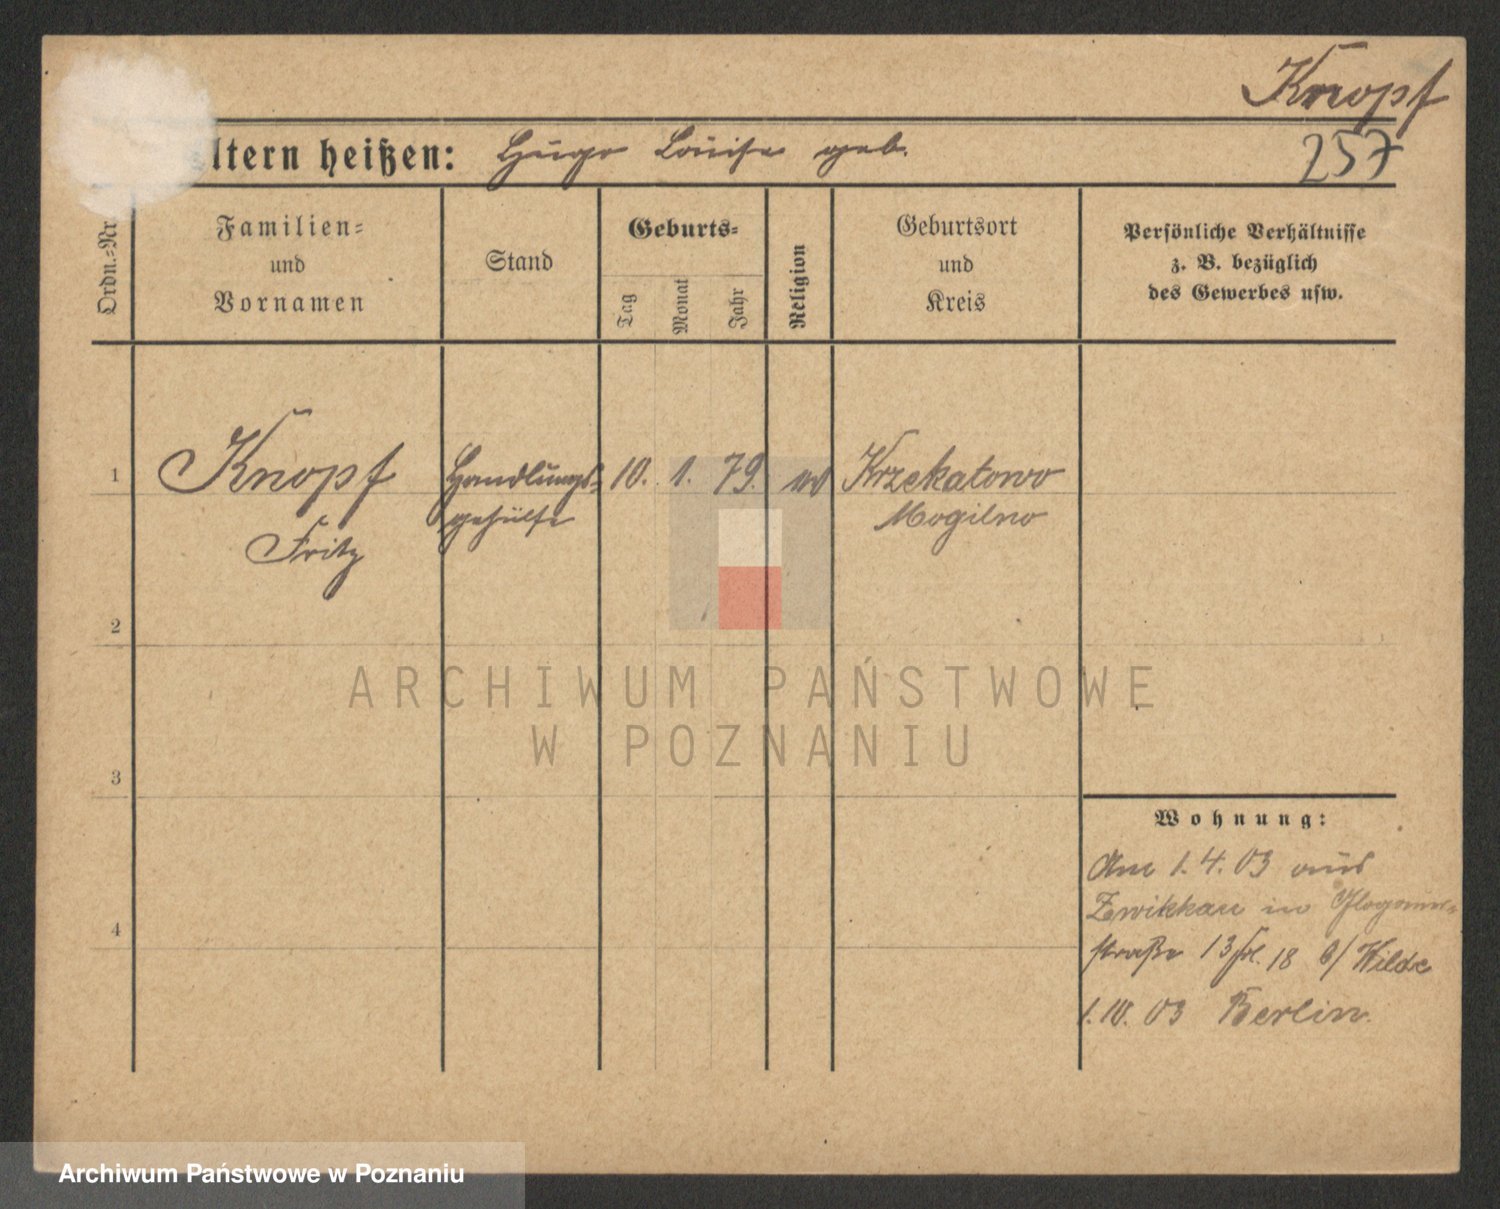 Knopf
eltern heißen: Hugo Louise geb.
257
Ordn.-Nr.
Familien-
und
Vornamen
Stand
Geburts-
Tag
Monat
Jahr
Religion
Geburtsort
und
Kreis
Persönliche Verhältnisse
z. B. bezüglich
des Gewerbes usw.
1 Knopf Handlungs- 10. 1. 79. Krzekatowo
Fritz gehülfe Mogilno
2
3
4
Wohnung:
Am 1.4.03 aus
Zwikkau in Glogauer-
straße 13 18 b/ Wilde
1.10.03 Berlin.
ARCHIWUM PAŃSTWOWE
W POZNANIU
Archiwum Państwowe w Poznaniu